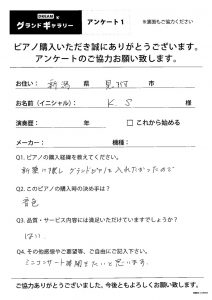 グランドギャラリー
アンケート1
※裏面もご協力ください
ピアノ購入いただき誠にありがとうございます。
アンケートのご協力お願い致します。
お住い： 新潟 県 見附 市
お名前（イニシャル）： K.S 様
演奏歴： 年 これから始める
メーカー： 機種：
Q1. ピアノの購入経緯を教えてください。
新築に際し グランドピアノを入れたかったので
Q2. このピアノの購入時の決め手は？
音色
Q3. 品質・サービス内容には満足いただけていますでしょうか？
はい
Q4. その他感想やご要望等、ご自由にご記入下さい。
ミニコンサート等開きたいと思います。
ご協力ありがとうございました。今後ともよろしくお願い致します。